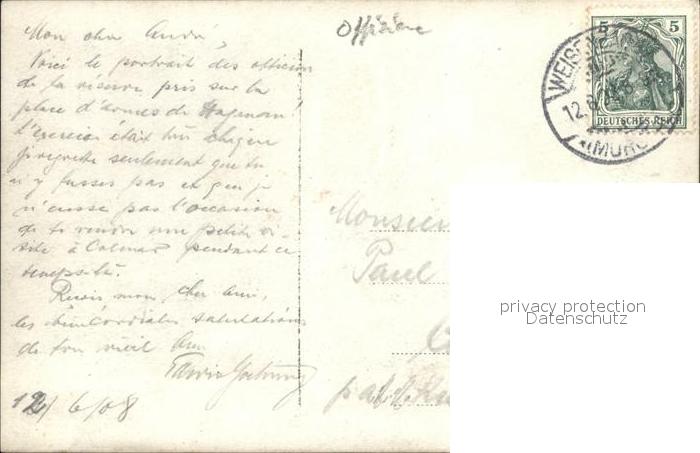 Mon cher André,
Voici le portrait des officiers
de la réserve pris sur la
place d'armes de Hagenau!
L'exercice était très
je regrette seulement que tu
n'y fusses pas et que je
n'eusse pas l'occasion
de te rendre une petite vi-
site à Colmar pendant ce
temps
Reçois mon cher ami,
les bien cordiales salutations
de ton vieil ami
12/6/08
Offiziere
5 5
DEUTSCHES REICH
WEISEN
12.6
(MURG
Monsieur
Paul
privacy protection
Datenschutz